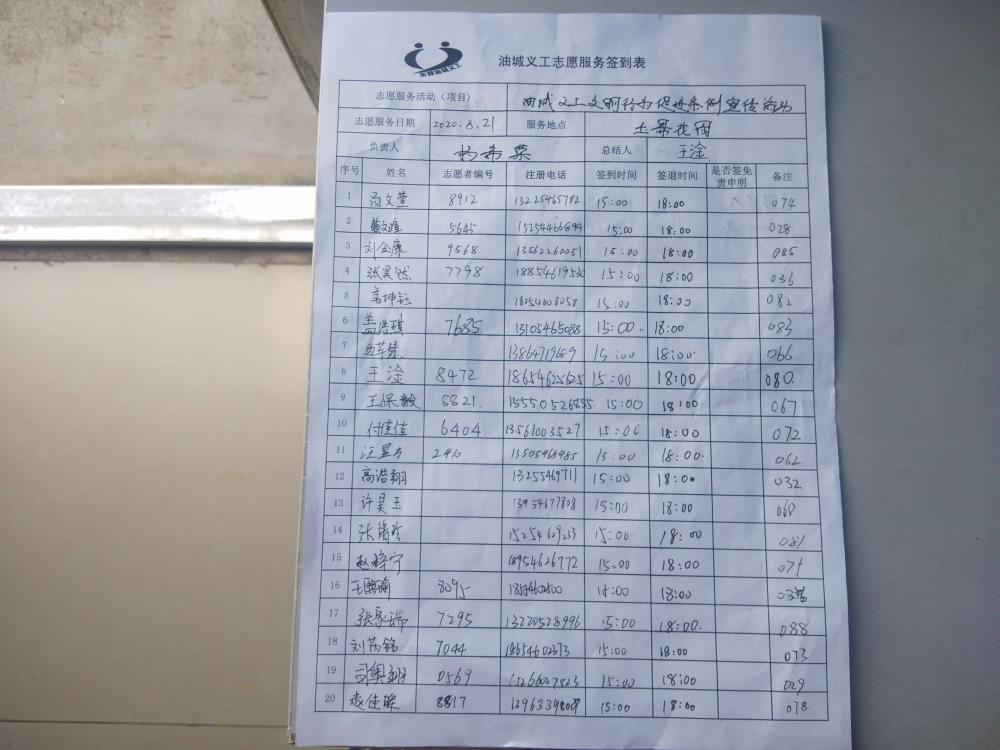 东营油城义工
油城义工志愿服务签到表
志愿服务活动（项目） 油城义工文明行为促进条例宣传活动
志愿服务日期 2020.8.21 服务地点 土景花园
负责人 杨希票 总结人 王淦
序号 姓名 志愿者编号 注册电话 签到时间 签退时间 是否签免责申明 备注
1 文萱 8912 13225465782 15:00 18:00 074
2 5645 15254466899 15:00 18:00 028
3 刘金康 9568 13562260051 15:00 18:00 085
4 张昊然 7798 18854619530 15:00 18:00 036
5 坤钰 18054008058 15:00 18:00 082
6 盖浩琪 7685 13105465088 15:00 18:00 083
7 13864719689 15:00 18:00 066
8 王淦 8472 18654625625 15:00 18:00 080
9 王保毅 8821 15550526855 15:00 18:00 067
10 付佳佳 6404 13561003527 15:00 18:00 072
11 2410 13505468485 15:00 18:00 062
12 高浩翔 13255469711 15:00 18:00 032
13 许昊玉 13954677808 15:00 18:00 068
14 张 15254629233 15:00 18:00 081
15 赵梓宁 18954626772 15:00 18:00 071
16 王 8095 15:00 18:00
17 张家瑞 7295 13220528996 15:00 18:00 088
18 刘芮铭 7044 18654602373 15:00 18:00 073
19 0569 15:00 18:00 029
20 袁佳 8817 15:00 18:00 078